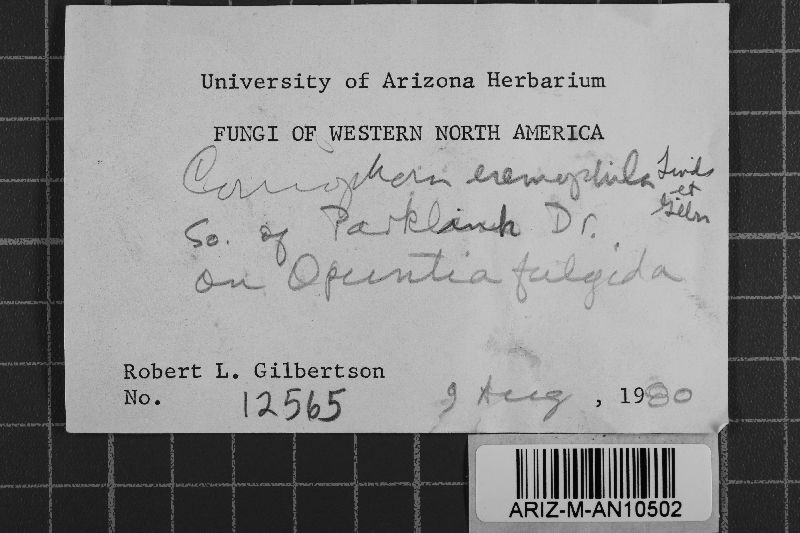 University of Arizona Herbarium
FUNGI OF WESTERN NORTH AMERICA
Coniophora eremophila Linds
et
Gilbn
So. of Parklink Dr.
on Opuntia fulgida
Robert L. Gilbertson
No. 12565 9 Aug, 1980
ARIZ-M-AN10502